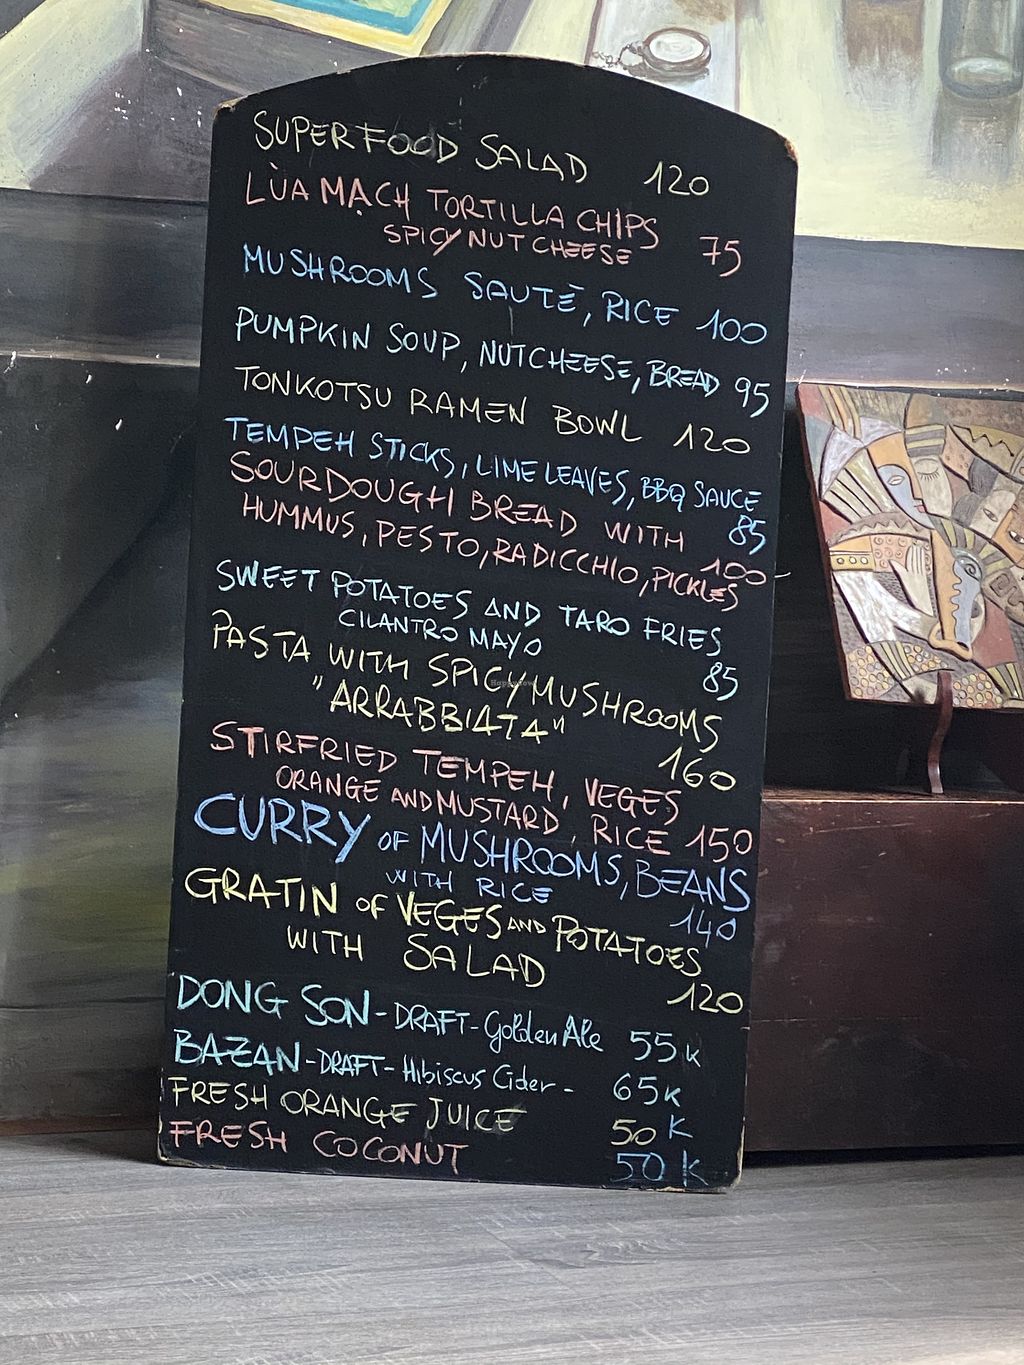 SUPERFOOD SALAD 120
LÙA MẠCH TORTILLA CHIPS
SPICY NUT CHEESE 75
MUSHROOMS SAUTÉ, RICE 100
PUMPKIN SOUP, NUTCHEESE, BREAD 95
TONKOTSU RAMEN BOWL 120
TEMPEH STICKS, LIME LEAVES, BBQ SAUCE
85
SOURDOUGH BREAD WITH
HUMMUS, PESTO, RADICCHIO, PICKLES 100
SWEET POTATOES AND TARO FRIES
CILANTRO MAYO
85
PASTA WITH SPICY MUSHROOMS
"ARRABBIATA"
160
STIRFRIED TEMPEH, VEGES
ORANGE AND MUSTARD, RICE 150
CURRY OF MUSHROOMS, BEANS
WITH RICE
140
GRATIN OF VEGES AND POTATOES
WITH SALAD
120
DONG SON - DRAFT - Golden Ale 55K
BAZAN - DRAFT - Hibiscus Cider - 65K
FRESH ORANGE JUICE 50 K
FRESH COCONUT 50 K